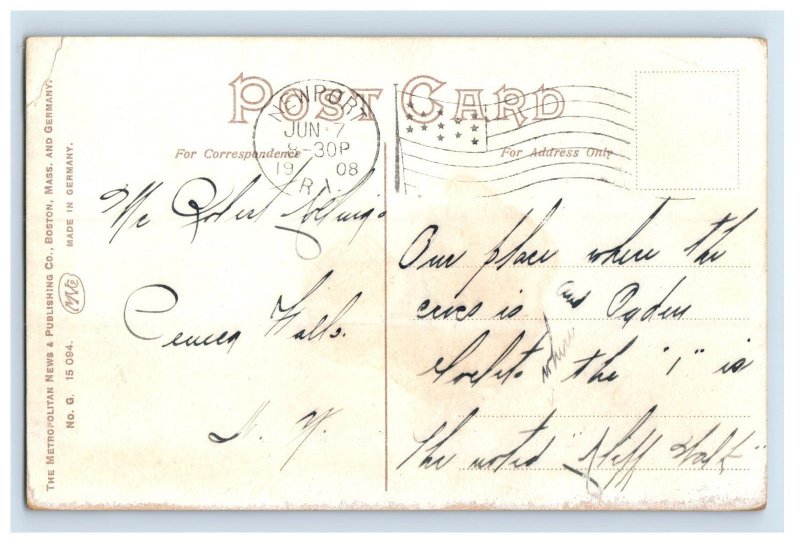 POST CARD
NEWPORT
JUN 7
8-30P
19 08
R.I.
For Correspondence
For Address Only
THE METROPOLITAN NEWS & PUBLISHING CO., BOSTON, MASS. AND GERMANY.
No. G. 15 094. MADE IN GERMANY.
Mr Robert
Ceneca Falls.
N. Y.
Our place where the
cross is and Ogden
where the "1" is
the noted "Cliff Walk"